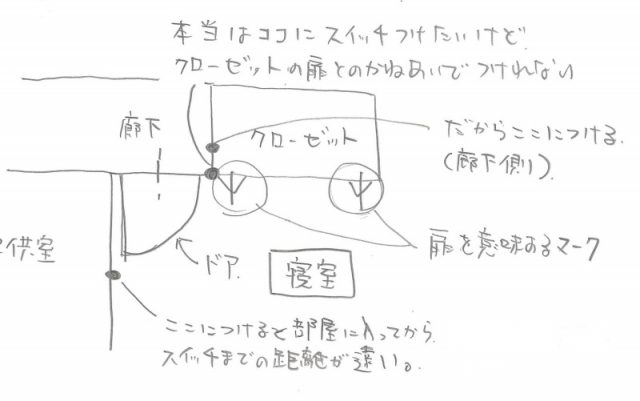 本当はココにスイッチつけたいけど
クローゼットの扉とのかねあいでつけれない
廊下
クローゼット
だからここにつける
(廊下側).
供室
ドア
寝室
扉を意味するマーク
ここにつけると部屋に入ってから
スイッチまでの距離が遠い。